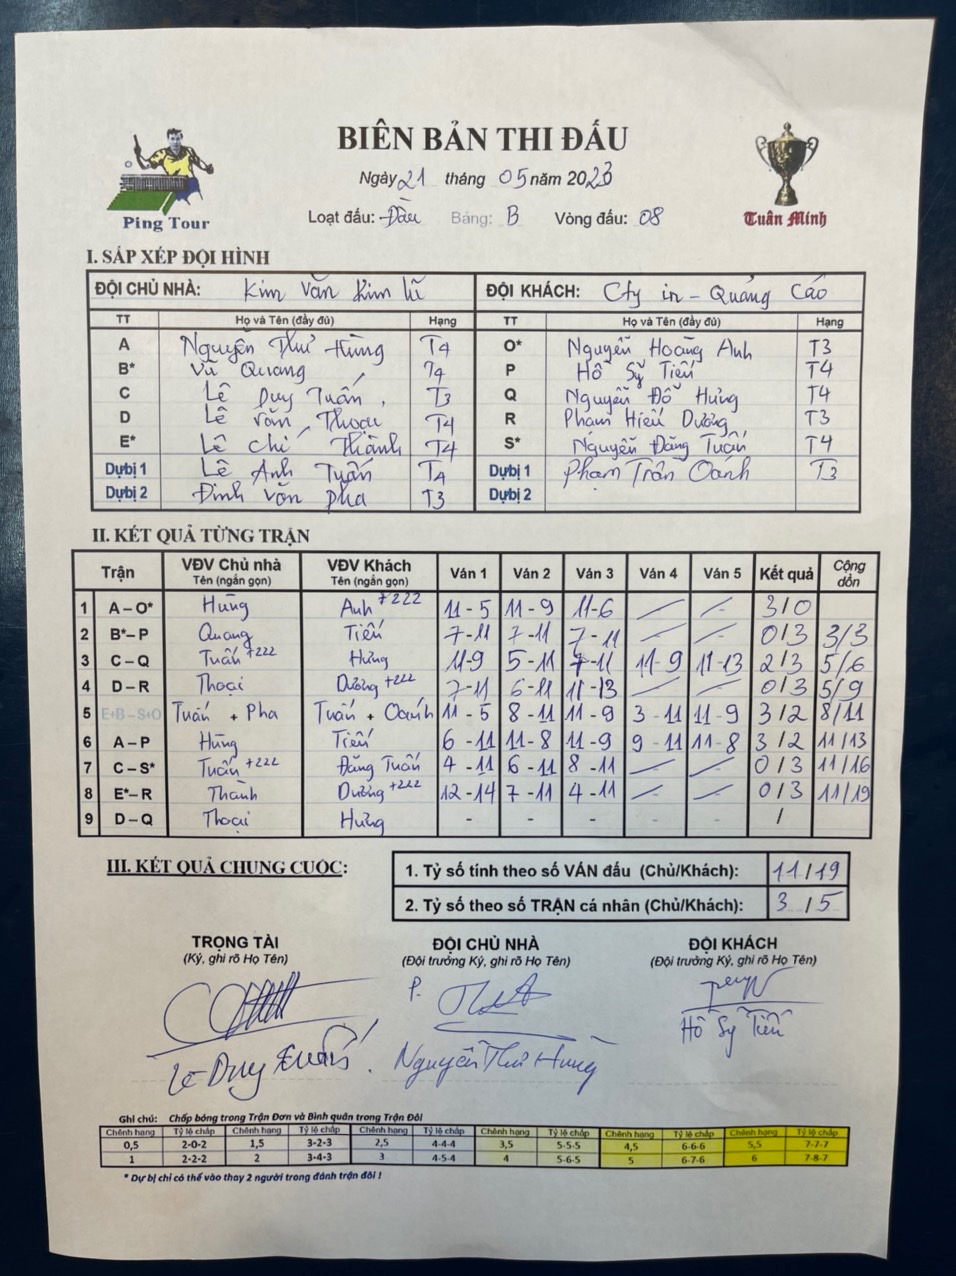 BIÊN BẢN THI ĐẤU
Ngày 21 tháng 05 năm 2023
Ping Tour
Tuấn Minh
Loạt đấu: Đầu Bảng: B Vòng đấu: 08
I. SẮP XẾP ĐỘI HÌNH
ĐỘI CHỦ NHÀ: Kim Văn Kim Vĩ ĐỘI KHÁCH: Cty in - Quảng Cáo
TT Họ và Tên (đầy đủ) Hạng TT Họ và Tên (đầy đủ) Hạng
A Nguyễn Thư Hùng T4 O* Nguyễn Hoàng Anh T3
B* Vũ Quang T4 P Hồ Sỹ Tiến T4
C Lê Duy Tuấn T3 Q Nguyễn Đỗ Hưng T4
D Lê Văn Thoại T4 R Phạm Hiếu Dương T3
E* Lê Chí Thành T4 S* Nguyễn Đăng Tuấn T4
Dự bị 1 Lê Anh Tuấn T4 Dự bị 1 Phạm Trần Oánh T3
Dự bị 2 Đinh Văn Pha T3 Dự bị 2
II. KẾT QUẢ TỪNG TRẬN
Trận VĐV Chủ nhà Tên (ngắn gọn) VĐV Khách Tên (ngắn gọn) Ván 1 Ván 2 Ván 3 Ván 4 Ván 5 Kết quả Cộng dồn
1 A – O* Hùng Anh +222 11 - 5 11 - 9 11 - 6 / - 3/0
2 B* – P Quang Tiến 7 - 11 7 - 11 7 - 11 0/3 3/3
3 C – Q Tuấn +222 Hưng 11 - 9 5 - 11 7 - 11 11 - 9 11 - 13 2/3 5/6
4 D – R Thoại Dương +222 7 - 11 6 - 11 11 - 13 0/3 5/9
5 E+B – S+O Tuấn + Pha Tuấn + Oánh 11 - 5 8 - 11 11 - 9 3 - 11 11 - 9 3/2 8/11
6 A – P Hùng Tiến 6 - 11 11 - 8 11 - 9 9 - 11 11 - 8 3/2 11/13
7 C – S* Tuấn +222 Đăng Tuấn 4 - 11 6 - 11 8 - 11 0/3 11/16
8 E* – R Thành Dương +222 12 - 14 7 - 11 4 - 11 0/3 11/19
9 D – Q Thoại Hưng - - - - - /
III. KẾT QUẢ CHUNG CUỘC:
1. Tỷ số tính theo số VÁN đấu (Chủ/Khách): 11/19
2. Tỷ số theo số TRẬN cá nhân (Chủ/Khách): 3/5
TRỌNG TÀI ĐỘI CHỦ NHÀ ĐỘI KHÁCH
(Ký, ghi rõ Họ Tên) (Đội trưởng Ký, ghi rõ Họ Tên) (Đội trưởng Ký, ghi rõ Họ Tên)
P.
Lê Duy Tuấn Nguyễn Thư Hùng Hồ Sỹ Tiến
Ghi chú: Chấp bóng trong Trận Đơn và Bình quân trong Trận Đôi
Chênh hạng Tỷ lệ chấp Chênh hạng Tỷ lệ chấp Chênh hạng Tỷ lệ chấp Chênh hạng Tỷ lệ chấp Chênh hạng Tỷ lệ chấp Chênh hạng Tỷ lệ chấp
0,5 2-0-2 1,5 3-2-3 2,5 4-4-4 3,5 5-5-5 4,5 6-6-6 5,5 7-7-7
1 2-2-2 2 3-4-3 3 4-5-4 4 5-6-5 5 6-7-6 6 7-8-7
* Dự bị chỉ có thể vào thay 2 người trong đánh trận đôi !